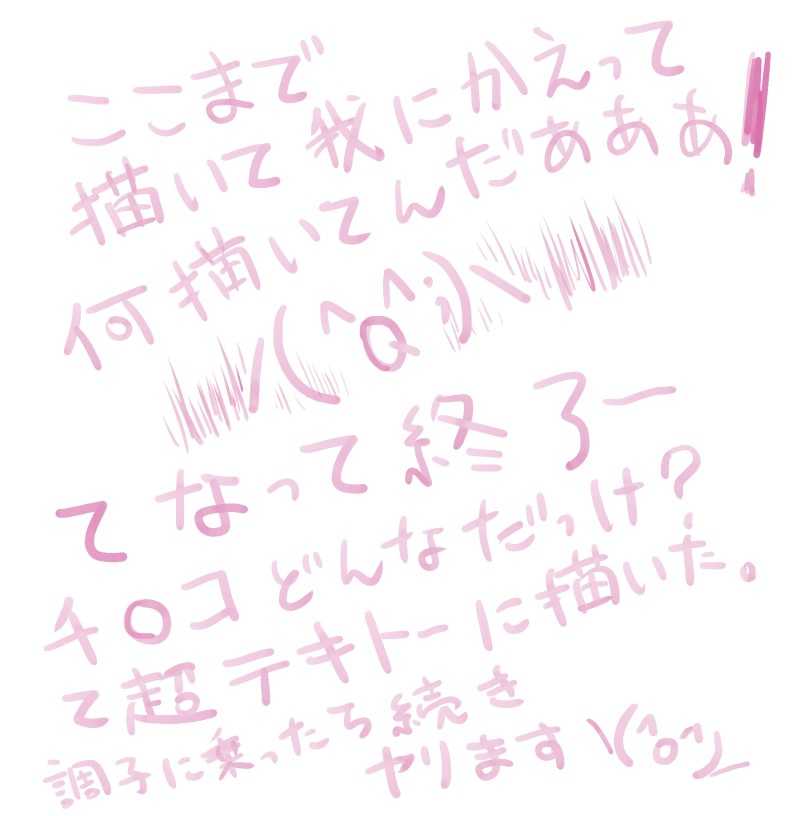 ここまで
描いて我にかえって
何描いてんだあああ!
/(^o^;)\
てなって終了ー
チ○コどんなだっけ?
て超テキトーに描いた。
調子に乗ったら続き
ヤリます\(^o^)ノ